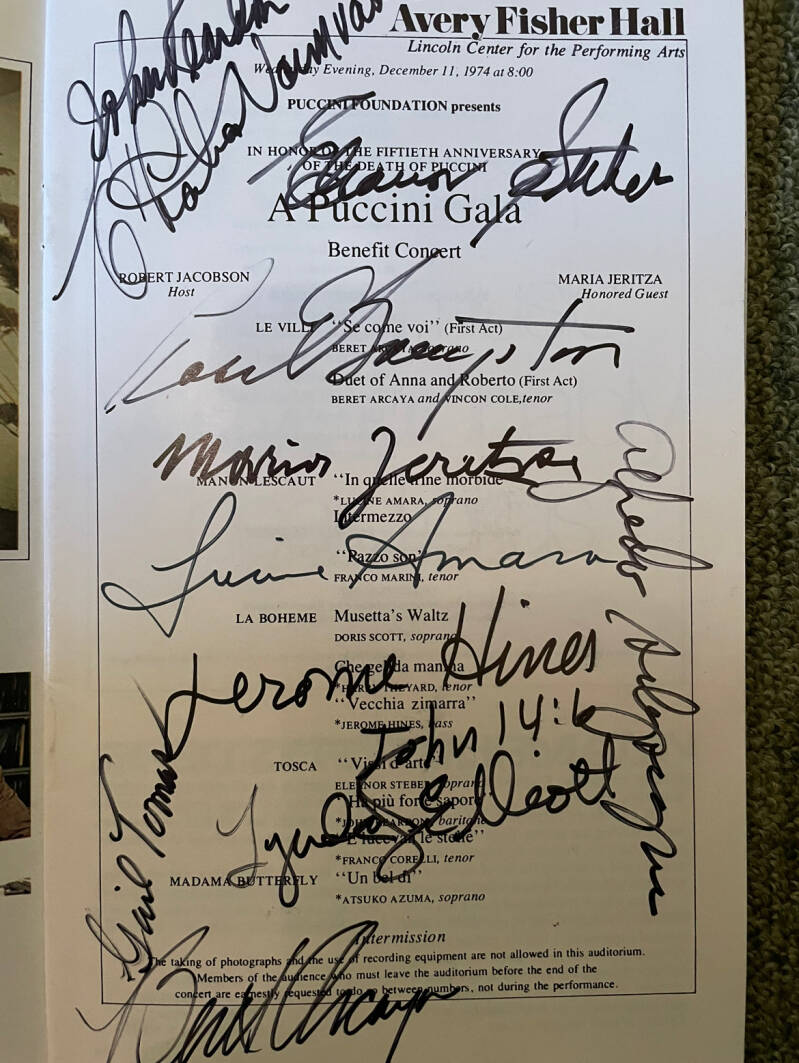 Avery Fisher Hall
Lincoln Center for the Performing Arts
Wednesday Evening, December 11, 1974 at 8:00
John Reardon
PUCCINI FOUNDATION presents
IN HONOR OF THE FIFTIETH ANNIVERSARY
OF THE DEATH OF PUCCINI
Eleanor Steber
A Puccini Gala
Benefit Concert
ROBERT JACOBSON
Host
MARIA JERITZA
Honored Guest
LE VILLI "Se come voi" (First Act)
BERET ARCAYA, soprano
Rose Bampton
Duet of Anna and Roberto (First Act)
BERET ARCAYA and VINCON COLE, tenor
Maria Jeritza
MANON LESCAUT "In quelle trine morbide"
*LUCINE AMARA, soprano
Intermezzo
Lucine Amara
"Pazzo son"
FRANCO MARINI, tenor
LA BOHEME Musetta's Waltz
DORIS SCOTT, soprano
Che gelida manina
*HARRY THEYARD, tenor
Jerome Hines
"Vecchia zimarra"
*JEROME HINES, bass
John 14:6
TOSCA "Vissi d'arte"
ELEANOR STEBER, soprano
Ha più forte sapore"
*JOHN REARDON, baritone
Elliott
"E lucevan le stelle"
*FRANCO CORELLI, tenor
MADAMA BUTTERFLY "Un bel di"
*ATSUKO AZUMA, soprano
Alfredo
Gail Tomas
Intermission
The taking of photographs and the use of recording equipment are not allowed in this auditorium.
Members of the audience who must leave the auditorium before the end of the
concert are earnestly requested to do so between numbers, not during the performance.
Beret Arcaya